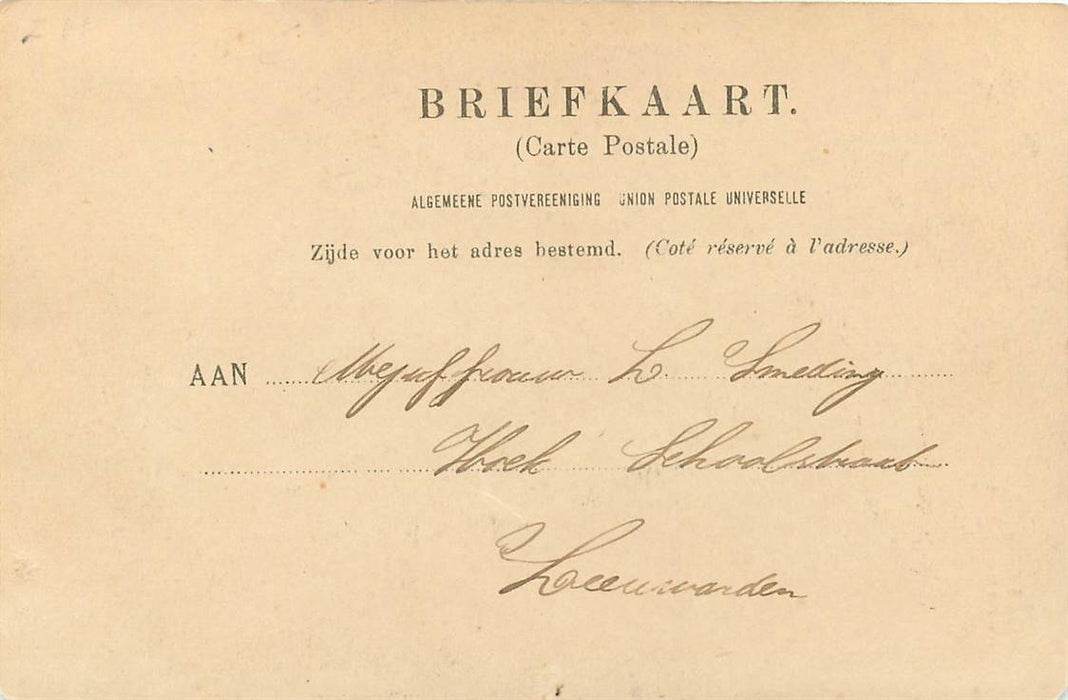 BRIEFKAART.
(Carte Postale)
ALGEMEENE POSTVEREENIGING UNION POSTALE UNIVERSELLE
Zijde voor het adres bestemd. (Coté réservé à l'adresse.)
AAN Mejuffrouw L. Smeding
Hoek Schoolstraat
Leeuwarden